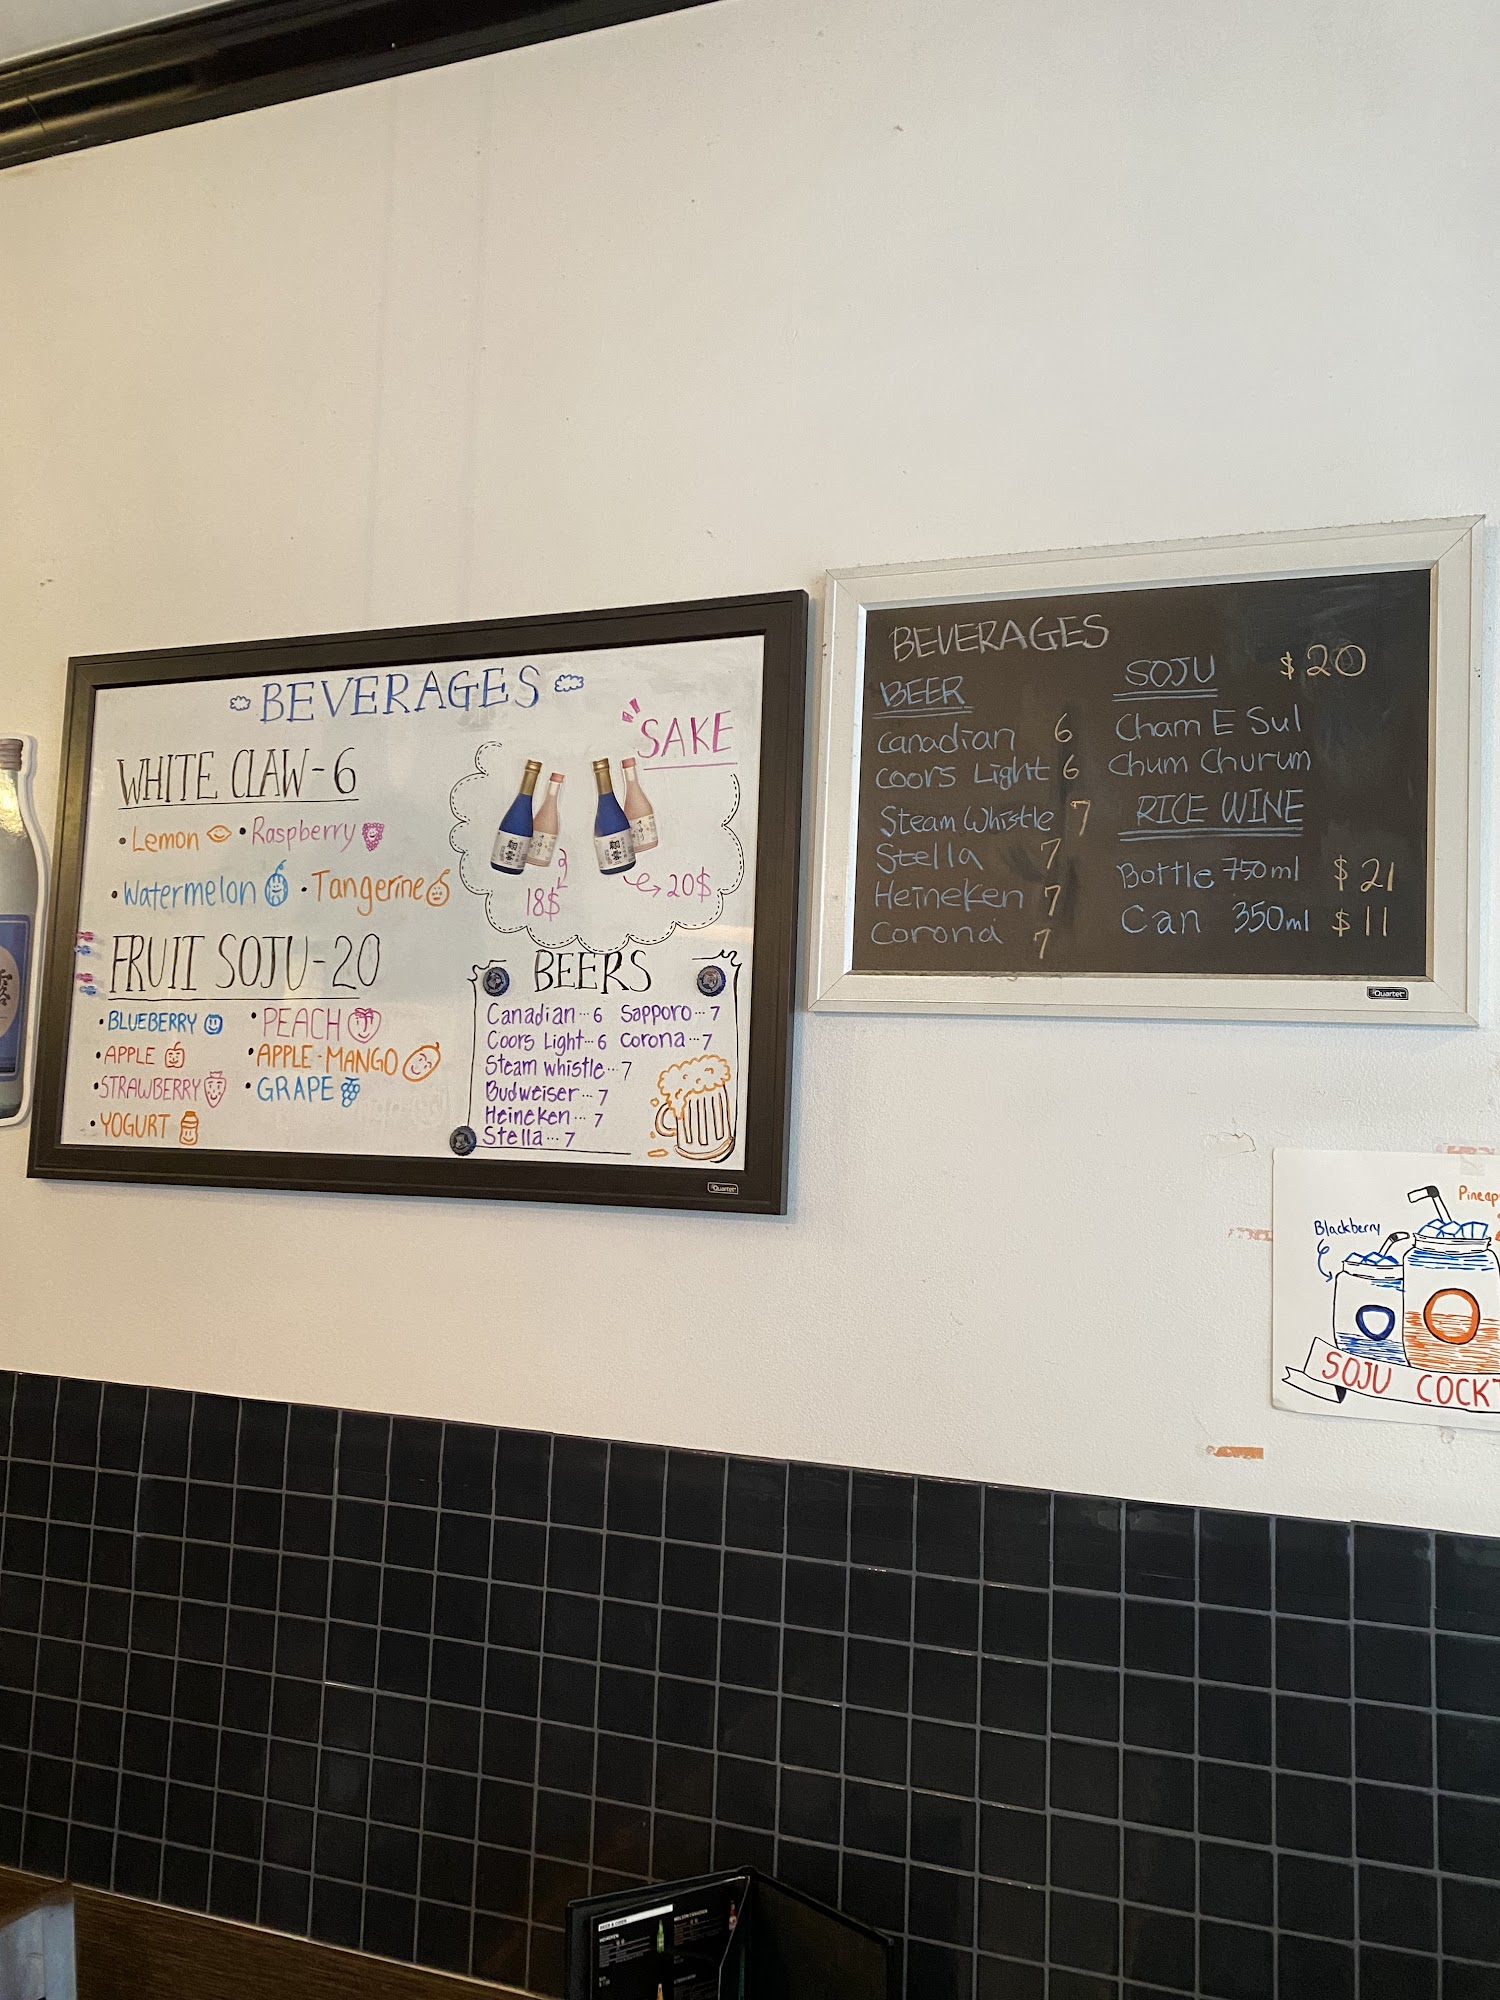 BEVERAGES
WHITE CLAW-6
• Lemon • Raspberry
• Watermelon • Tangerine
FRUIT SOJU-20
• BLUEBERRY • PEACH
• APPLE • APPLE-MANGO
• STRAWBERRY • GRAPE
• YOGURT
SAKE
18$ 20$
BEERS
Canadian...6 Sapporo...7
Coors Light...6 Corona...7
Steam whistle...7
Budweiser...7
Heineken...7
Stella...7
Quartet
BEVERAGES
BEER
Canadian 6
Coors Light 6
Steam Whistle 7
Stella 7
Heineken 7
Corona 7
SOJU $20
Cham E Sul
Chum Churum
RICE WINE
Bottle 750ml $21
Can 350ml $11
Quartet
Pineap
Blackberry
SOJU COCKT
HEINEKEN